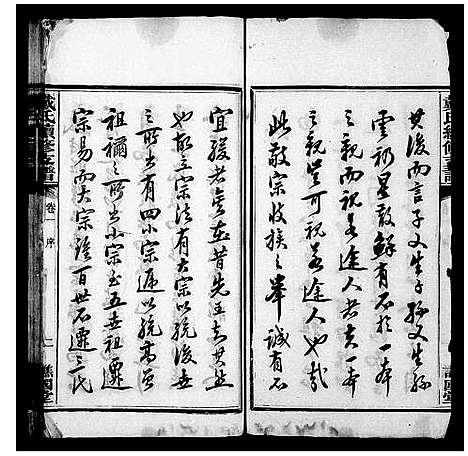 其後而言子又生子孫又生孫
雲礽星散鮮有不於一本
之親而視為途人者夫一本
之親豈可視為途人也哉
此敬宗收族之舉誠有不
宜緩者矣昔先王知其然
也故立宗法有大宗以統後世
之所出有四小宗遞以統高曾
祖禰之所出小宗至五世祖遷
宗易而大宗雖百世不遷之氏
戴氏續修支譜
卷一
序
譙國堂